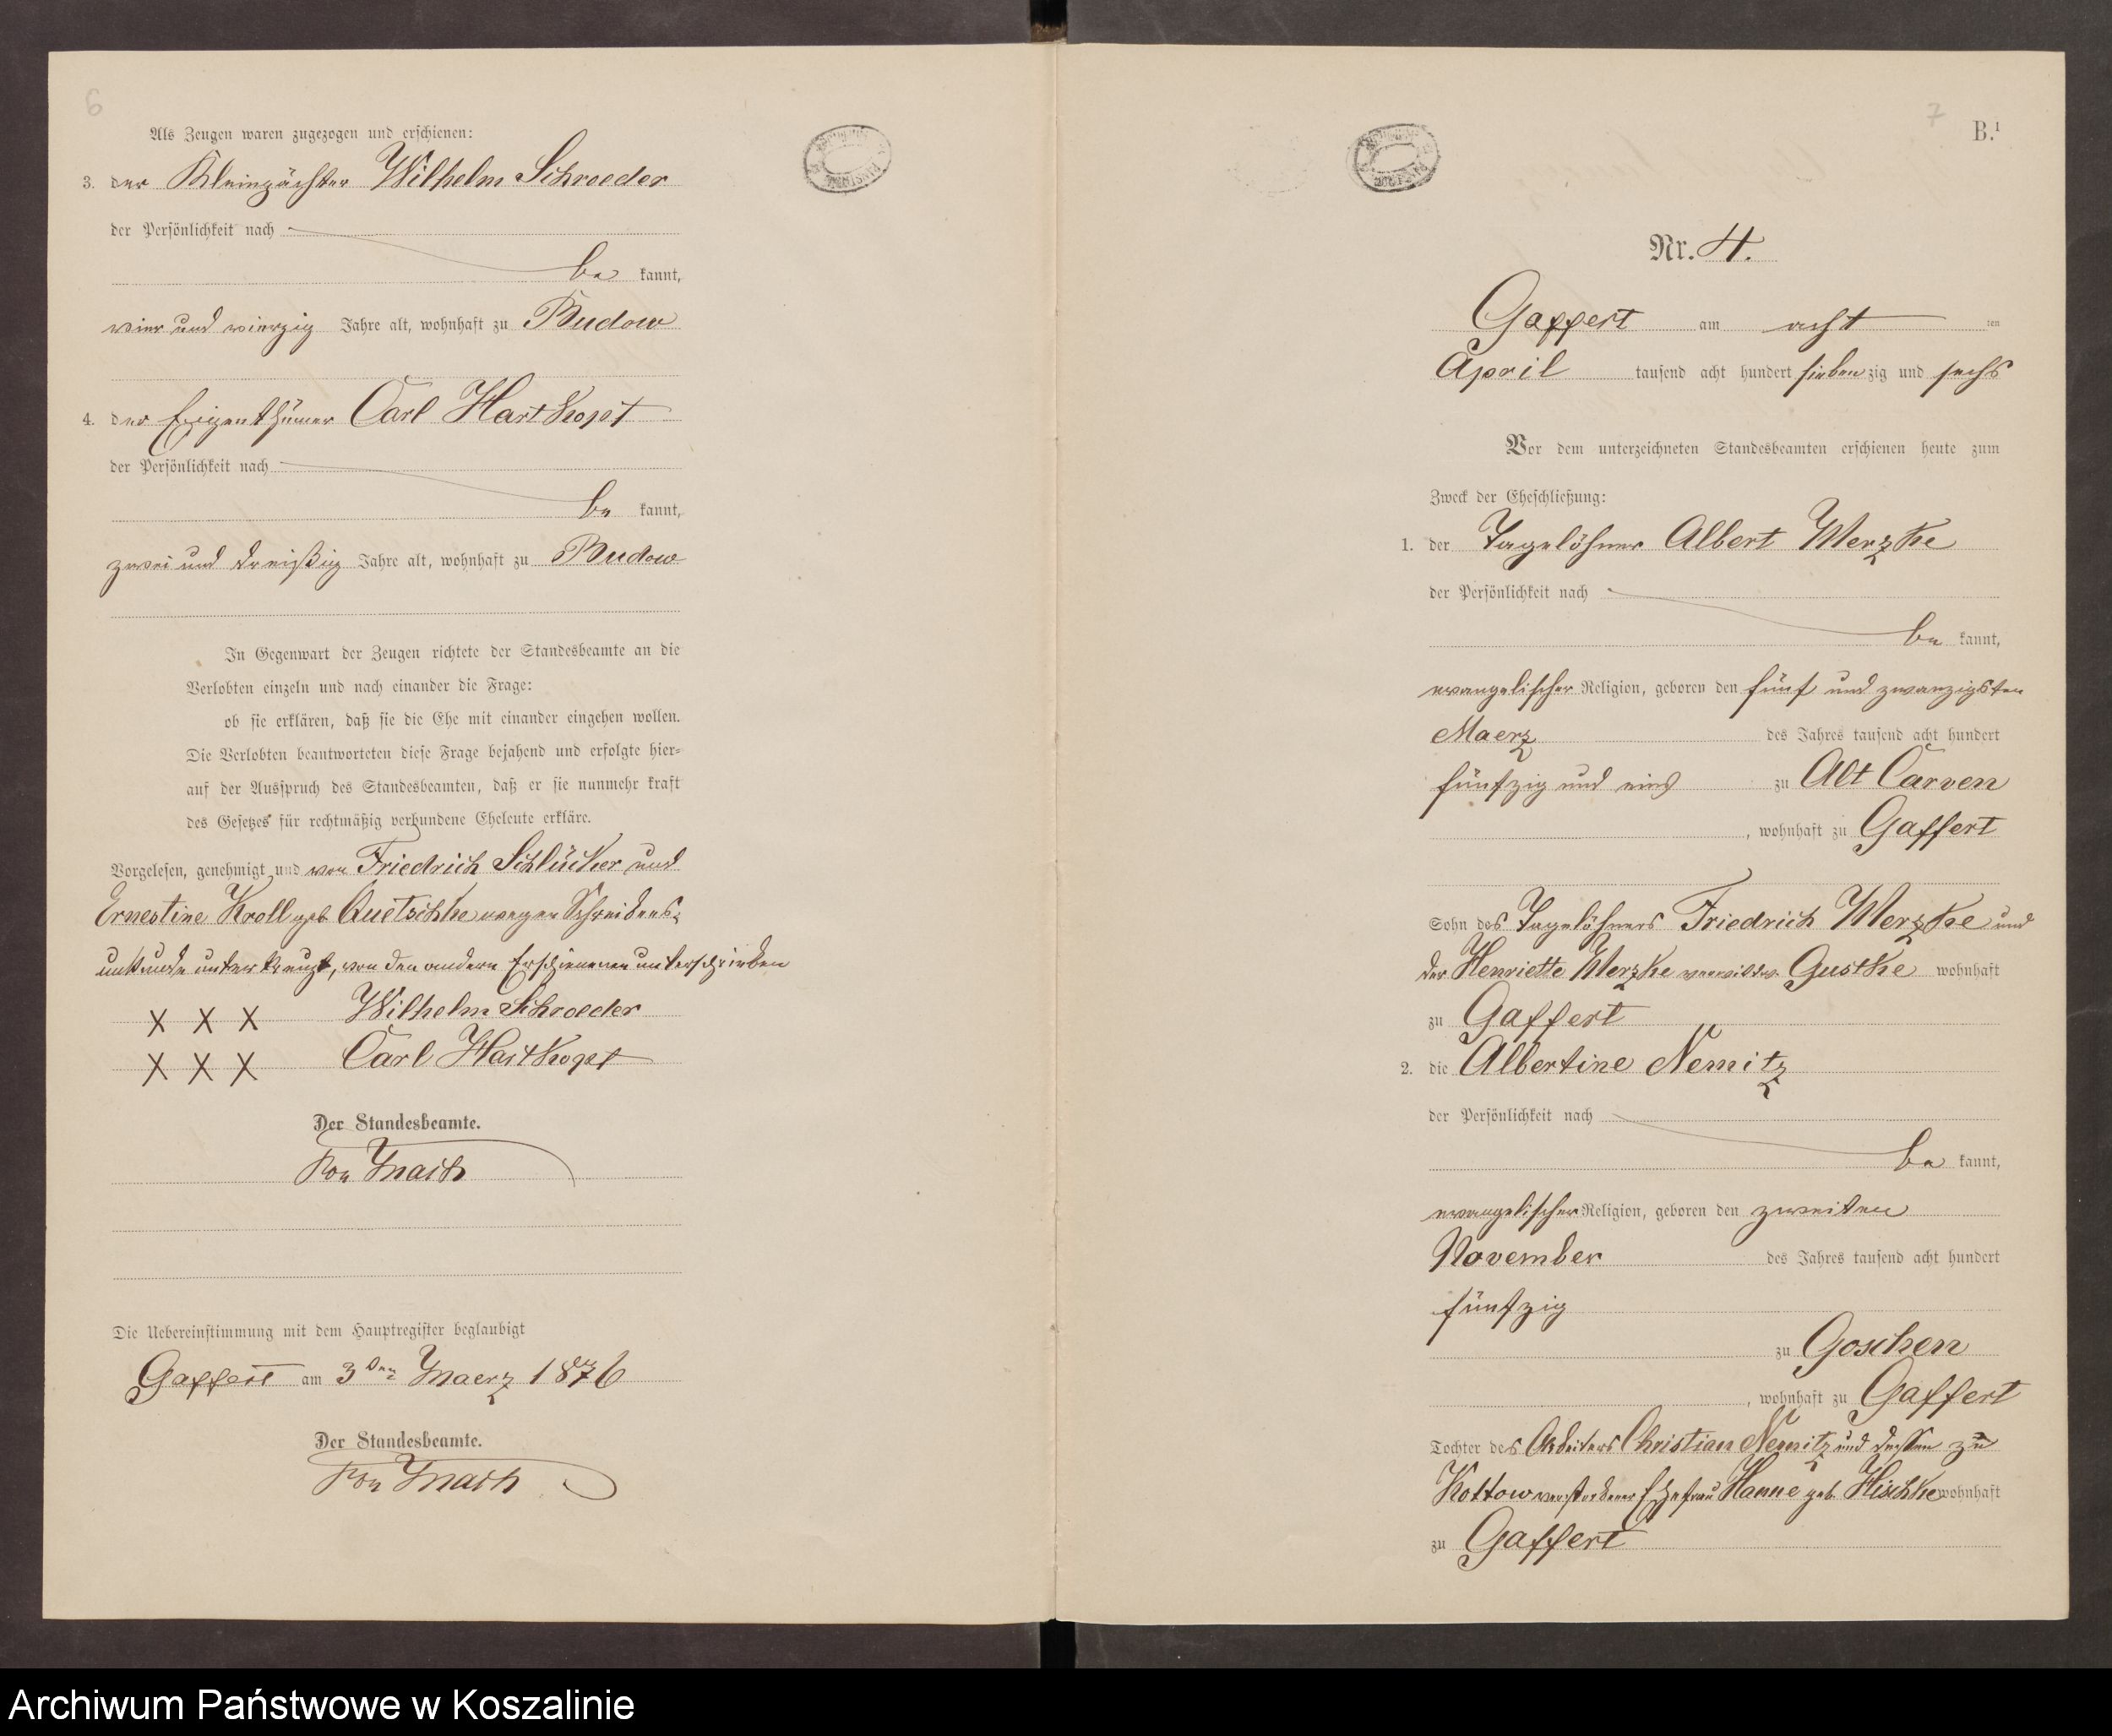 6
Als Zeugen waren zugezogen und erschienen:
3. der Kleinpächter Wilhelm Schroeder
der Persönlichkeit nach
be kannt,
vier und vierzig Jahre alt, wohnhaft zu Budow
4. der Eigenthümer Carl Hartkopf
der Persönlichkeit nach
be kannt,
zwei und dreißig Jahre alt, wohnhaft zu Budow
In Gegenwart der Zeugen richtete der Standesbeamte an die
Verlobten einzeln und nach einander die Frage:
ob sie erklären, daß sie die Ehe mit einander eingehen wollen.
Die Verlobten beantworteten diese Frage bejahend und erfolgte hier-
auf der Ausspruch des Standesbeamten, daß er sie nunmehr kraft
des Gesetzes für rechtmäßig verbundene Eheleute erkläre.
Vorgelesen, genehmigt und von Friedrich Schlücker und
Ernestine Kroll geb Quetschke wegen Schreibens-
unkunde unterkreuzt, von den andern Erschienenen unterschrieben
X X X Wilhelm Schroeder
X X X Carl Hartkopf
Der Standesbeamte.
Die Uebereinstimmung mit dem Hauptregister beglaubigt
Gaffert am 3ten Maerz 1876
Der Standesbeamte.
7
B.¹
Nr. 4.
Gaffert am acht ten
April tausend acht hundert sieben zig und sechs
Vor dem unterzeichneten Standesbeamten erschienen heute zum
Zweck der Eheschließung:
1. der Tagelöhner Albert Merzke
der Persönlichkeit nach
be kannt,
evangelischer Religion, geboren den fünf und zwanzigsten
Maerz des Jahres tausend acht hundert
fünfzig und eins zu Alt Carven
, wohnhaft zu Gaffert
Sohn des Tagelöhners Friedrich Merzke und
der Henriette Merzke verwittw. Gustke wohnhaft
zu Gaffert
2. die Albertine Nemitz
der Persönlichkeit nach
be kannt,
evangelischer Religion, geboren den zweiten
November des Jahres tausend acht hundert
fünfzig
zu Goschen
, wohnhaft zu Gaffert
Tochter des Arbeiters Christian Nemitz und dessen zu
Kottow verstorbener Ehefrau Hanne geb. Hischke wohnhaft
zu Gaffert
Archiwum Państwowe w Koszalinie